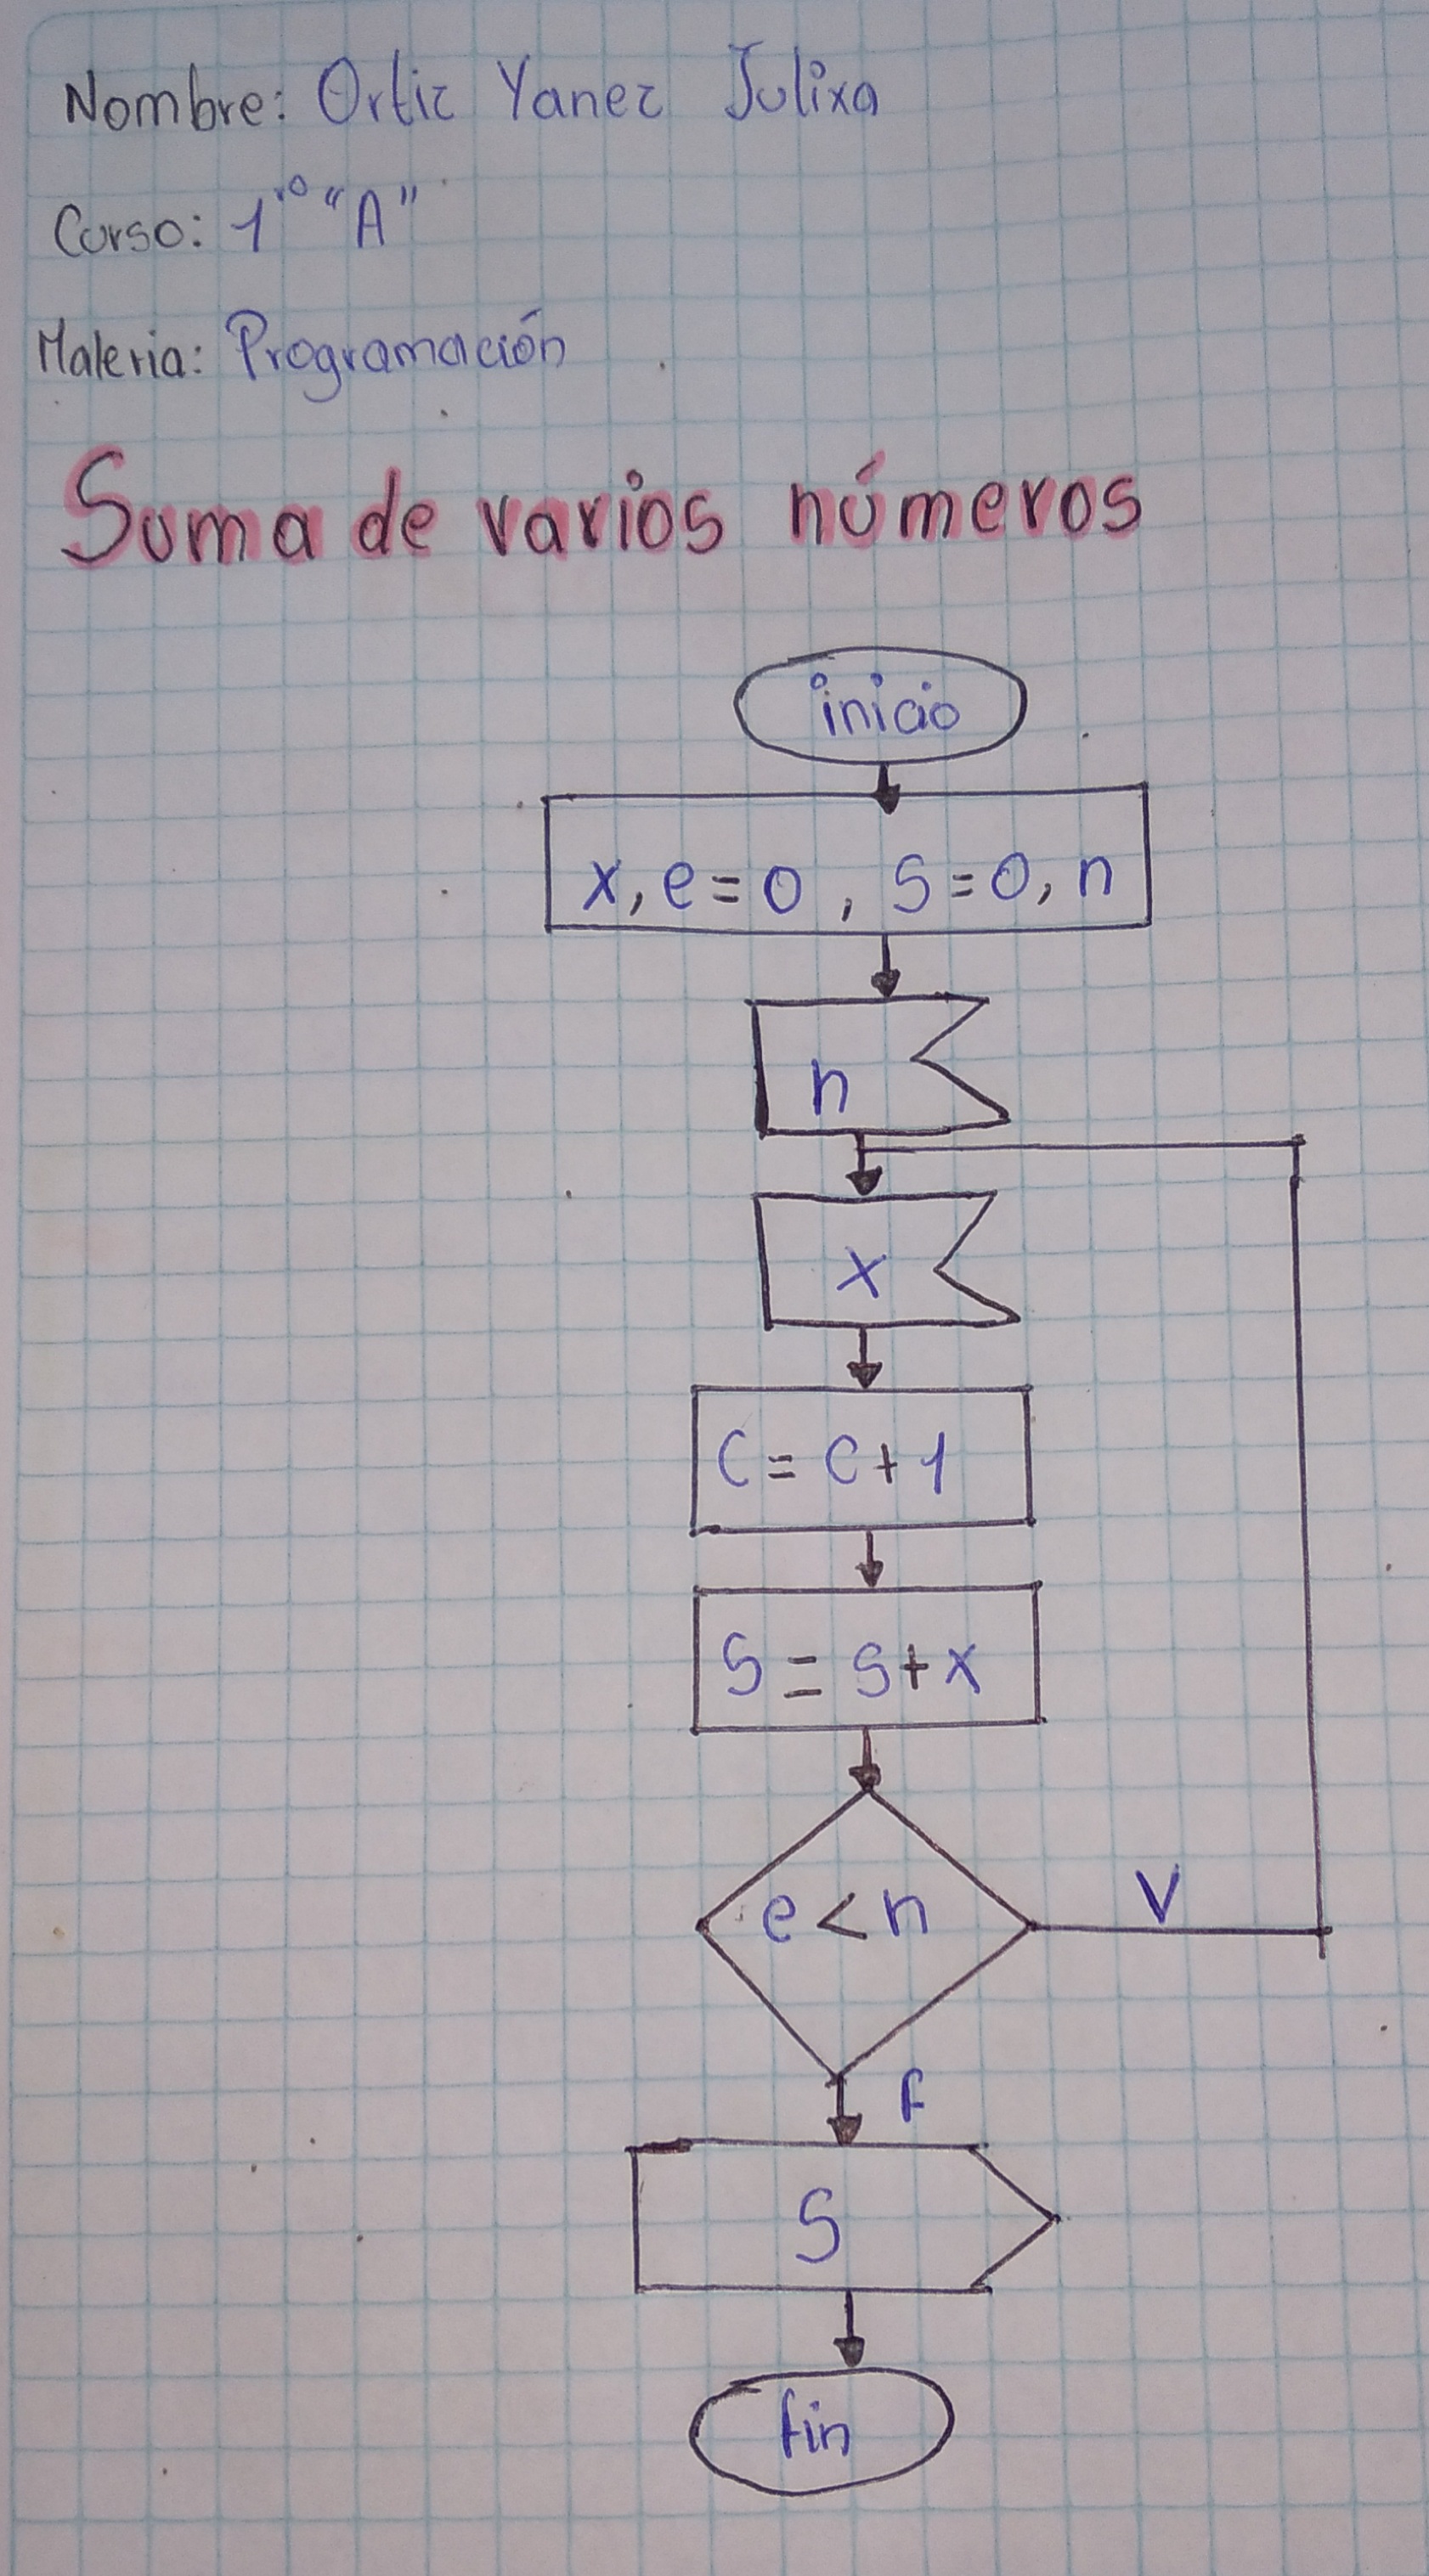 Nombre: Ortiz Yanez Julixa
Curso: 1ro "A"
Materia: Programación
Suma de varios números
inicio
x, e = 0 , S = 0, n
n
x
C = C + 1
S = S + x
e < n
V
F
S
fin